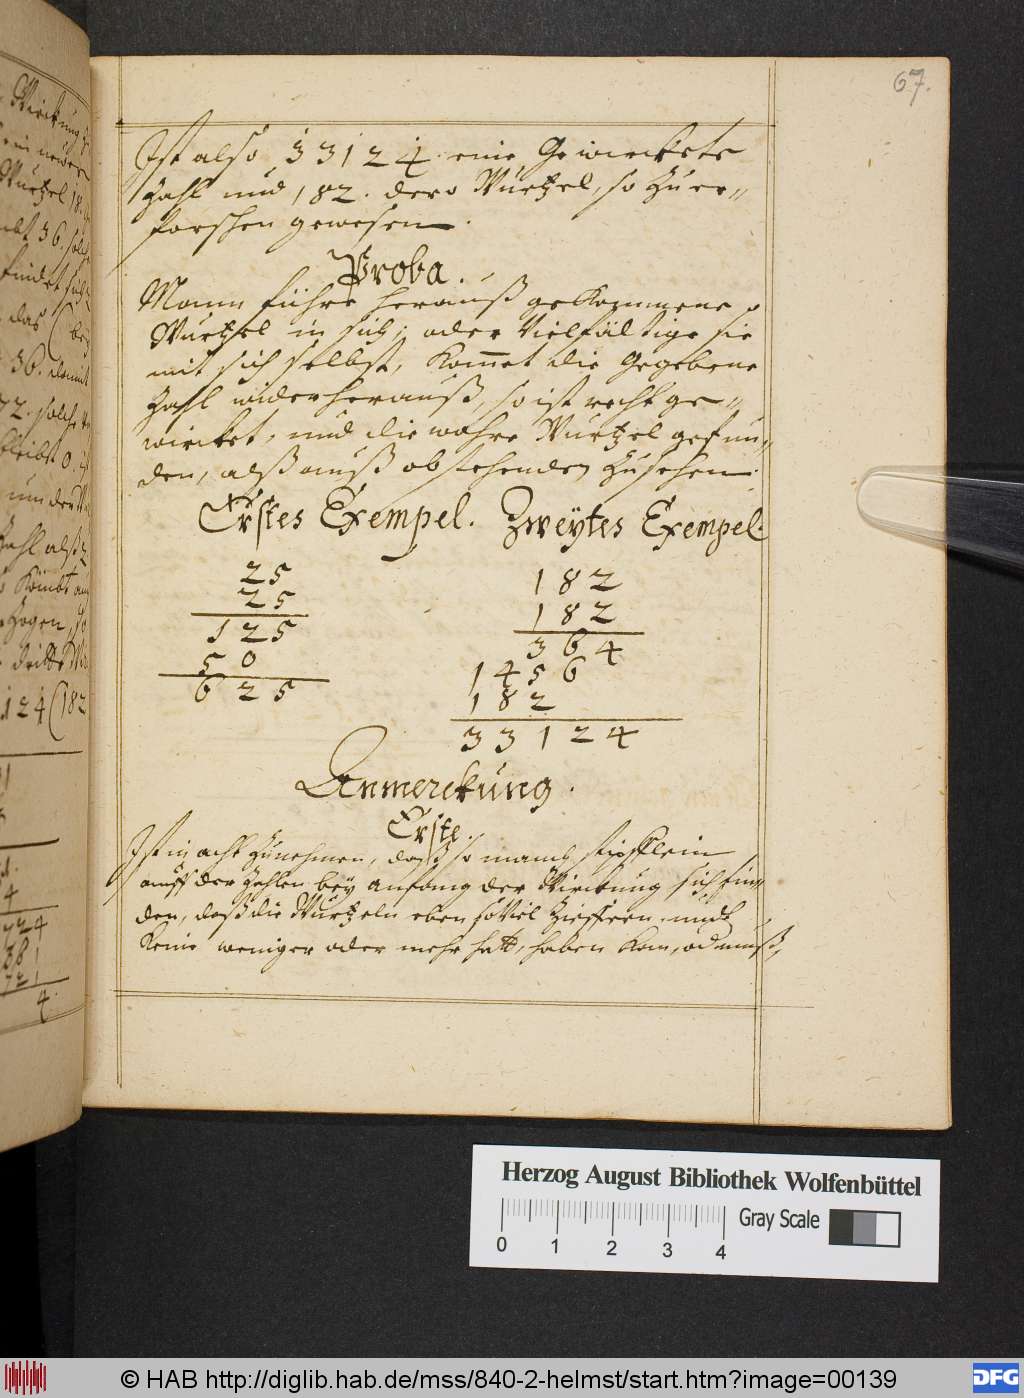 67.
Ist also 33124 eine Gewierckete
Zahl und 182. dero Würtzel, so zu er-
forschen gewesen.
Proba.
Mann führe herauß gekommene
Würtzel in sich; oder Vielfältige sie
mit sich selbst, Kom̄et die Gegebene
Zahl widerherauß, so ist recht ge-
wircket, und die wahre Würtzel gefun-
den, alß auß obstehenden zusehen.
Erstes Exempel. Zweÿtes Exempel.
25
25
125
50
625
182
182
364
1456
182
33124
Anmerckung.
Erste.
Ist in acht zunehmen, daß so manch stipfflein
auff der Zahlen beÿ anfang der Wirckung sich fin-
den, daß die Würtzeln eben so Viel Zieffern, undt
Keine weniger oder mehr hatt, haben Kan, od muß,
124(182
Herzog August Bibliothek Wolfenbüttel
Gray Scale
0 1 2 3 4
© HAB http://diglib.hab.de/mss/840-2-helmst/start.htm?image=00139
DFG